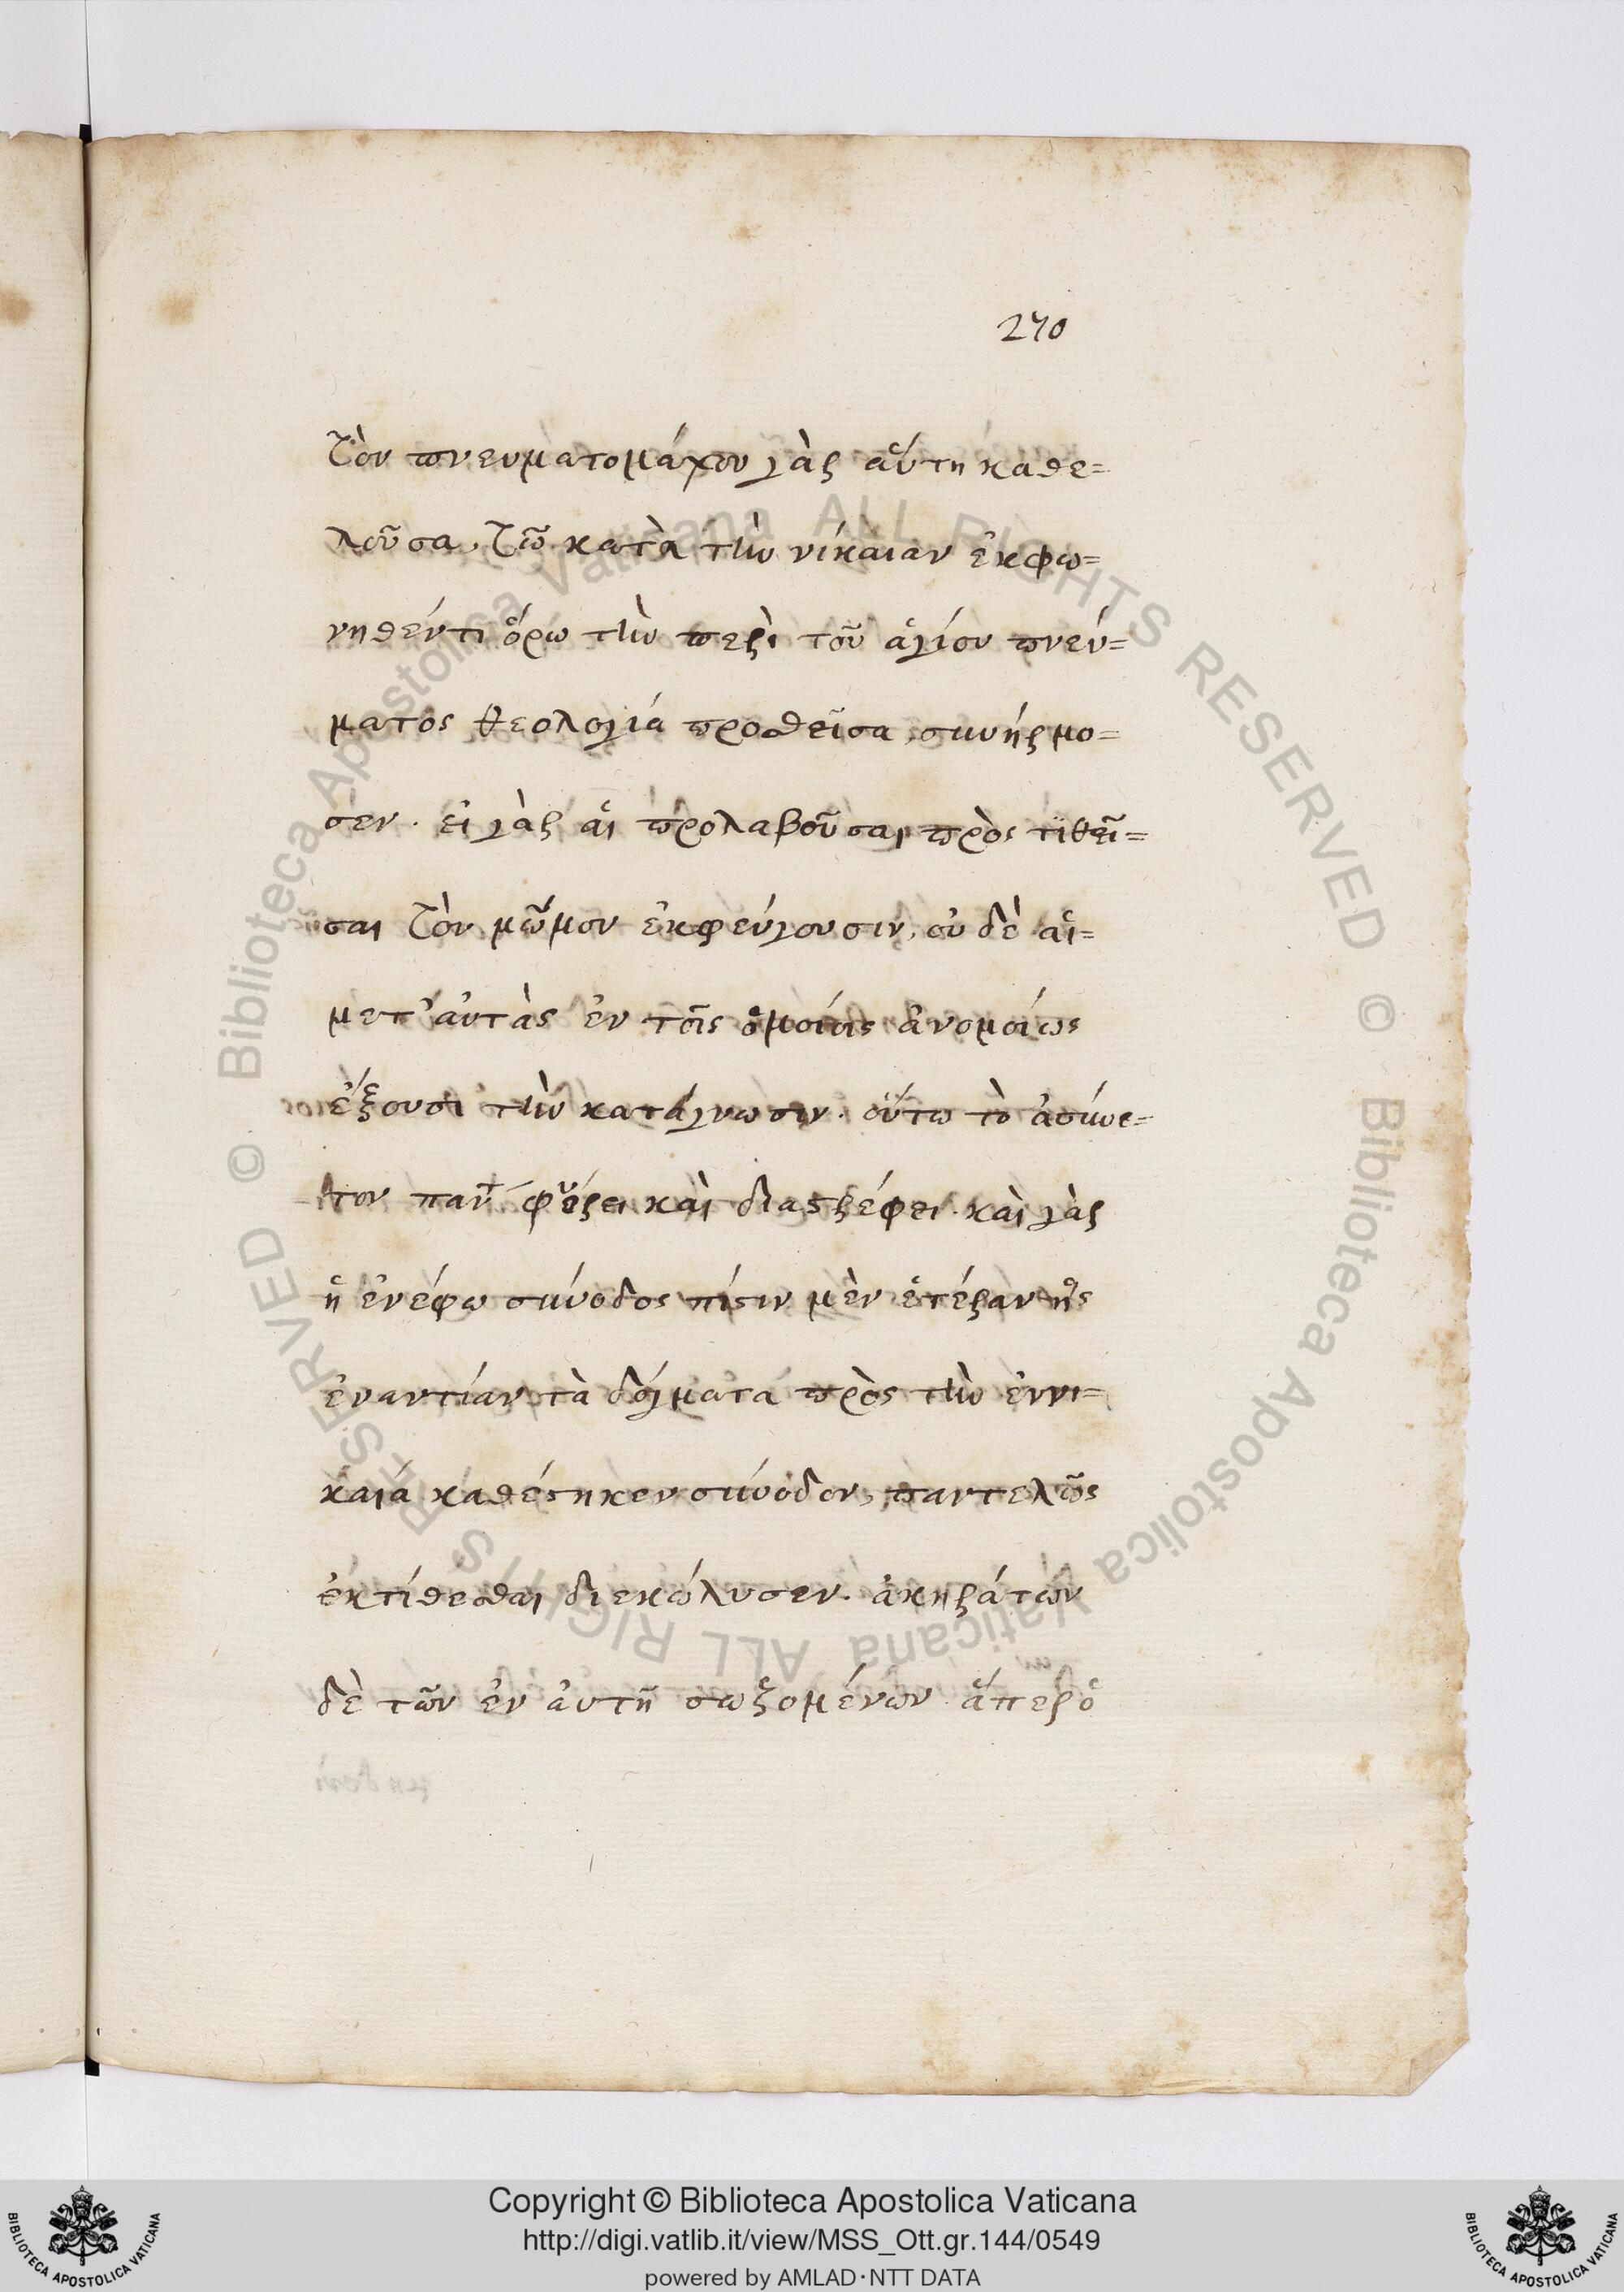 270
τὸν πνευματομάχον γὰρ αὕτη καθε=
λοῦσα, τῶ κατὰ τὴν νίκαιαν ἐκφω=
νηθέντι ὅρω τὴν περὶ τοῦ ἁγίου πνεύ=
ματος θεολογία προθεῖσα, συνήρμο=
σεν. εἰ γὰρ αἱ προλαβοῦσαι πρὸς τιθεῖ=
σαι τὸν μῶμον ἐκφεύγουσιν, οὐδὲ αἱ=
μετ' αὐτὰς ἐν τοῖς ὁμοίοις ἀνομοίως
ἕξουσι τὴν κατάγνωσιν. οὕτω τὸ ἀσύνε=
τον φύρει καὶ διαστρέφει. καὶ γὰρ
ἡ ἐνέφω σύνοδος πίστιν μὲν ἑτέραν ἧς
ἐναντίαν τὰ δόγματα πρὸς τὴν ἐννι=
καιά καθέστηκεν σύνοδον, παντελῶς
ἐκτίθεσθαι διεκώλυσεν. ἀκηράτων
δὲ τῶν ἐν ἀυτῆ σωζομένων ἅπερ ὁ
Copyright © Biblioteca Apostolica Vaticana
http://digi.vatlib.it/view/MSS_Ott.gr.144/0549
powered by AMLAD·NTT DATA
© Biblioteca Apostolica Vaticana ALL RIGHTS RESERVED
© Biblioteca Apostolica Vaticana ALL RIGHTS RESERVED
BIBLIOTECA APOSTOLICA VATICANA
BIBLIOTECA APOSTOLICA VATICANA